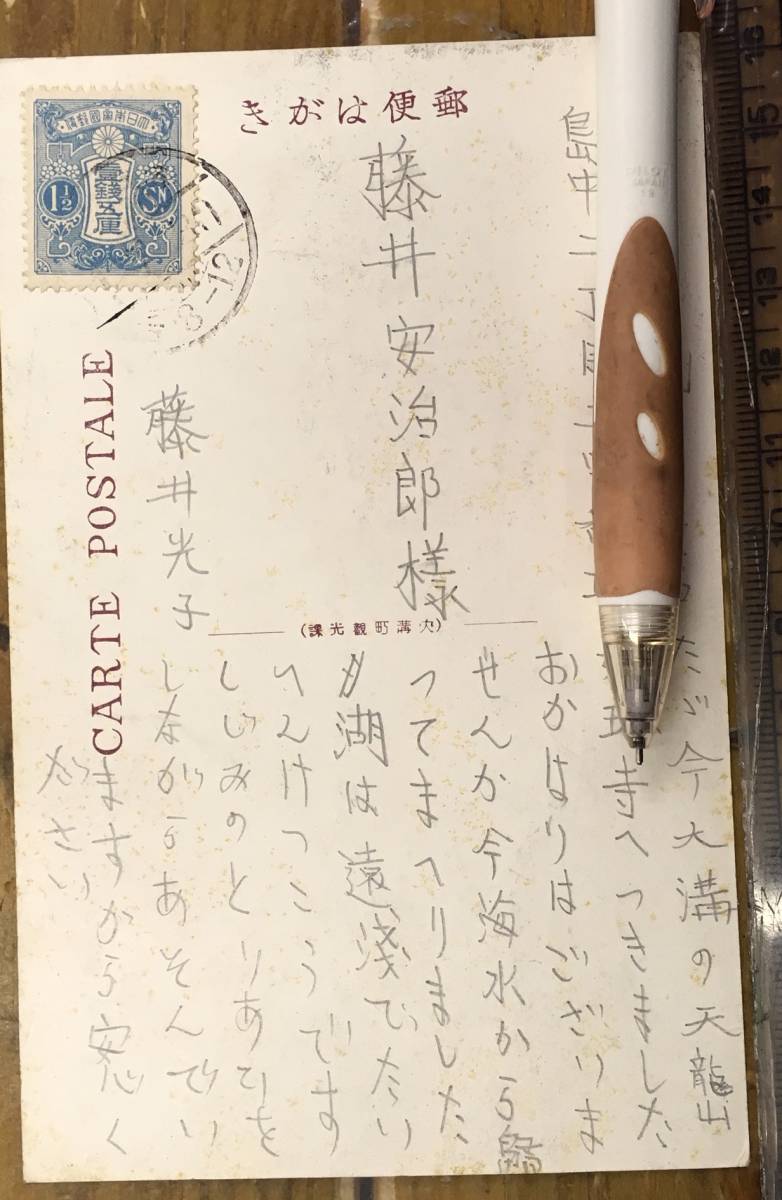 郵便はがき
大日本帝國郵便
壹錢五厘
1½
SN
8-12
島中二丁目
藤井安治郎様
藤井光子
CARTE POSTALE
(大溝町觀光課)
たゞ今大溝の天龍山
寺へつきました
おかはりはございま
せんか今海水から歸
つてまへりました
が湖は遠浅でたい
へんけつこうです
しじみのとりあひを
しながらあそんでい
ますから安心く
ださい